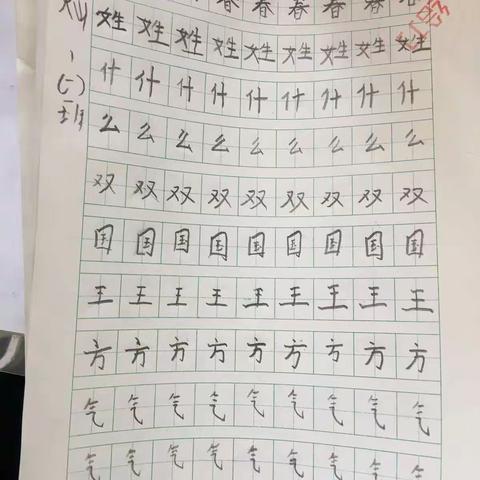 春 春 春 春 春
姓 姓 姓 姓 姓 姓 姓 姓 姓
什 什 什 什 什 什 什 什 什
么 么 么 么 么 么 么 么 么
双 双 双 双 双 双 双 双 双
国 国 国 国 国 国 国 国 国
王 王 王 王 王 王 王 王 王
方 方 方 方 方 方 方 方 方
气 气 气 气 气 气 气 气 气
气 气 气 气 气 气 气 气 气
班